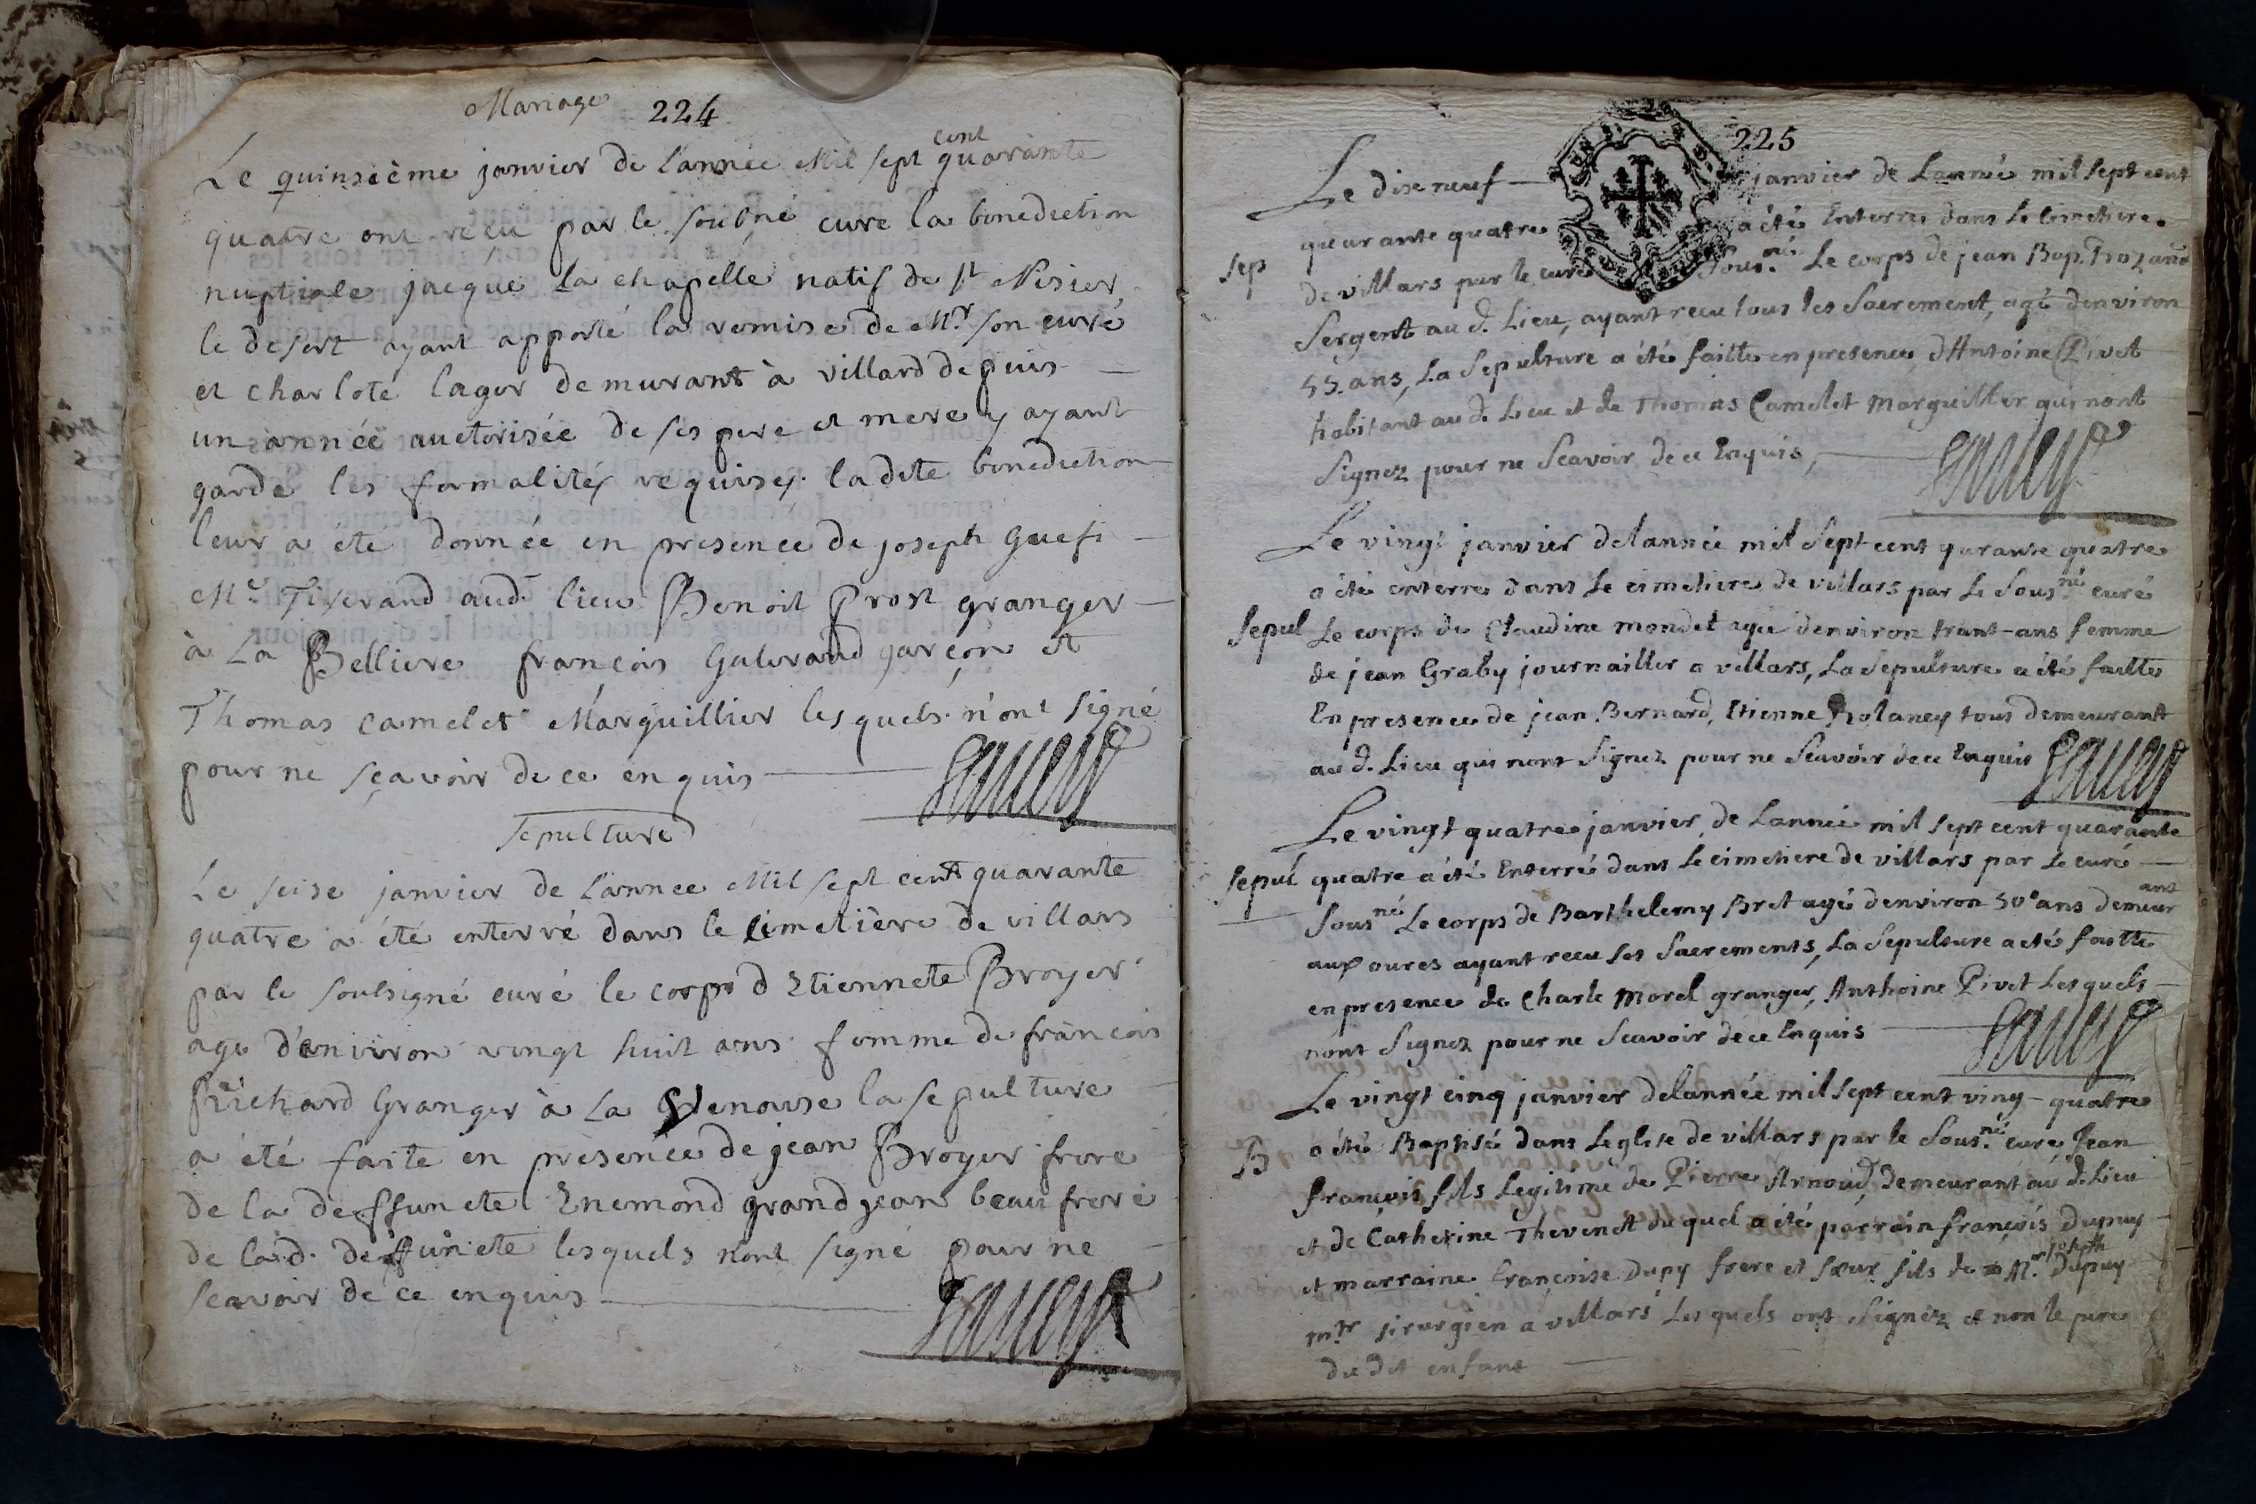 Mariage 224
Le quinsième janvier de L'année Mil sept cent quarante
quatre ont recu par le soubné curé la benediction
nuptiale jacque la chapelle natif de st Nisier
le desert ayant apporté la remise de Mr son curé
et charlote lager demurant à villard depuis
un année auctorisée de ses pere et mere y ayant
gardé les formalités requises. ladite benediction
leur a été donnée en presence de joseph Guefi
Me Tixerand aud. lieu Benoit Prost granger
à La Belliere françois Galerand garçon et
Thomas camelet Marguillier lesquels n'ont signé
pour ne sçavoir de ce enquis
Sepulture
Le seise janvier de L'annee Mil sept cent quarante
quatre a été enterré dans le cimetière de villars
par le soubsigné curé le corps d Etiennete Broyer
age d'environ vingt huit ans femme de françois
Richard Granger à La Genouse la sepulture
a été faite en presence de jean Broyer frere
de la deffuncte Enemond grandjean beaufrere
de la d. deffuncte lesquels nont signé pour ne
scavoir de ce enquis
225
Le dix neuf janvier de Lanné mil sept cent
quarante quatre a été Enterre dans Le cimetiere
sep
de villars par le curé sous.né Le corps de jean Bap.
Sergent au d. Lieu, ayant recu tous les Sacrement, agé denviron
55. ans, La Sepulture a été faitte en presence d'Antoine Pivet
habitant au d. Lieu et de Thomas Camelet Marguillier qui nont
Signez pour ne Scavoir de ce Enquis,
Le vingt janvier delannée mil Sept cent qurante quatre
a été enterre dans Le cimetiere de villars par Le Sous.né curé
sepul Le corps de Claudine mondet agée denviron trant-ans femme
de jean Graby journaillier a villars, La Sepulture a été faitte
En presence de jean Bernard, Etienne Rolaney tous demeurant
au d. Lieu qui nont Signez pour ne Scavoir de ce Enquis
Le vingt quatre janvier de Lannée mil sept cent quarante
sepul quatre a été Enterré dans Le cimetiere de villars par Le curé
Sous né Le corps de Barthelemy Bret agé denviron 50 ans demeurant
aux oures ayant recu ses Sacrements, La Sepulture a eté faitte
en presence de Charle Morel granger, Anthoine Pivet Lesquels
nont Signez pour ne Scavoir de ce Enquis
Le vingt cinq janvier delannée mil sept cent ving-quatre
B a été Baptisé dans Leglise de villars par le Sous.né curé Jean
françois fils Legitime de Pierre Arnoud, demeurant au d. Lieu
et de Catherine Thevenet du quel a été parrain françois Dupuy
et marraine Françoise Dupy frere et sœur fils de Mr joseph Dupuy
mtr sirurgien a villars Les quels ont Signez et non le pere
du dit enfant